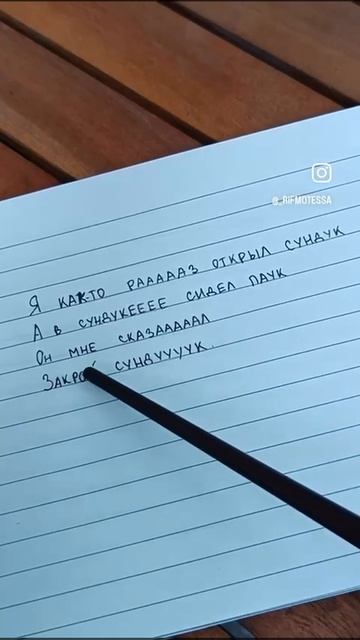 @_RIFMOTESSA
Я КАК-ТО РАААААЗ ОТКРЫЛ СУНДУК
А В СУНДУКЕЕЕЕ СИДЕЛ ПАУК
ОН МНЕ СКАЗАААААЛ
ЗАКРОЙ СУНДУУУУК.